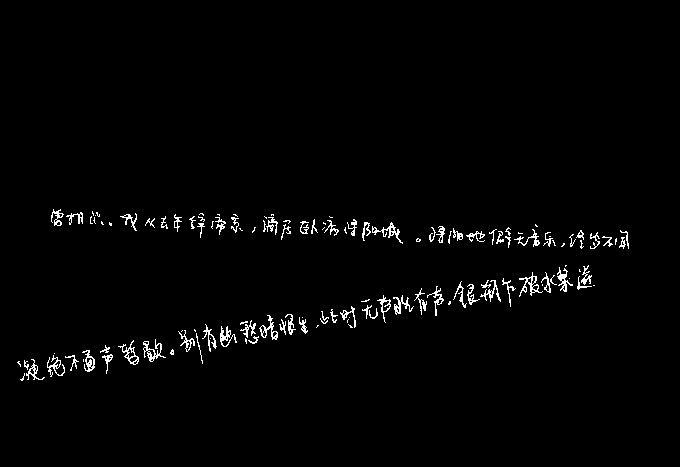 曾相识。我从去年辞帝京，谪居卧病浔阳城。浔阳地僻无音乐，终岁不闻
凝绝不通声暂歇。别有幽愁暗恨生，此时无声胜有声。银瓶乍破水浆迸